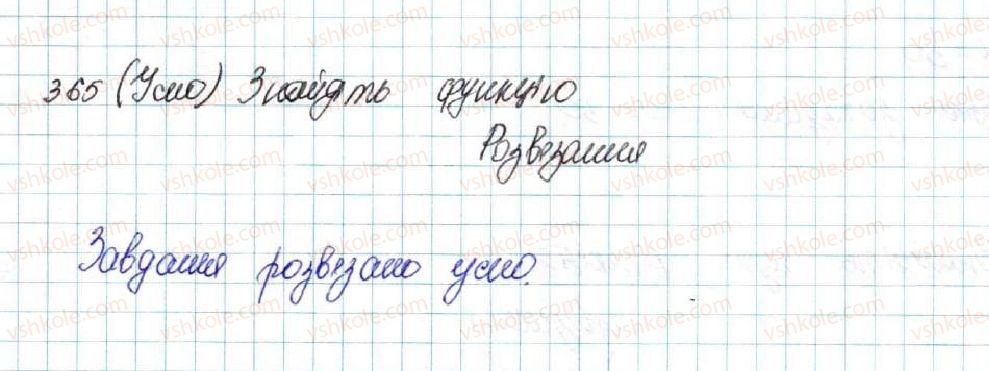 365 (Усно) Знайдіть функцію
Розвязання
Завдання розвязано усно.